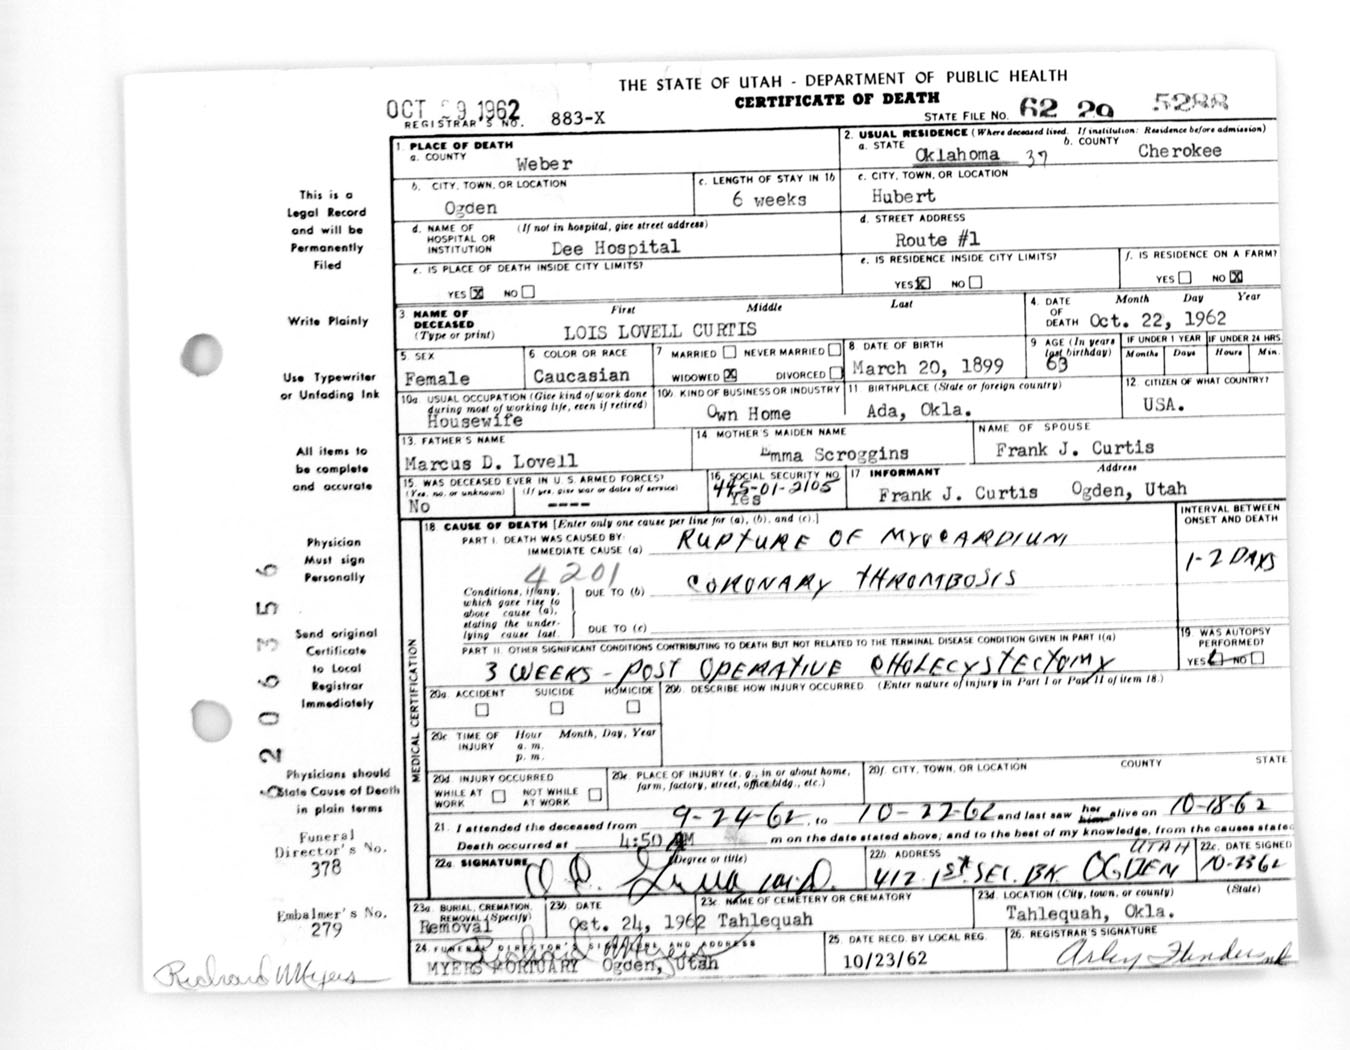 THE STATE OF UTAH - DEPARTMENT OF PUBLIC HEALTH
CERTIFICATE OF DEATH
OCT 29 1962
REGISTRAR'S NO. 883-X
STATE FILE NO. 62 29 5288
1. PLACE OF DEATH
a. COUNTY Weber
2. USUAL RESIDENCE (Where deceased lived. If institution: Residence before admission)
a. STATE Oklahoma 37 b. COUNTY Cherokee
b. CITY, TOWN, OR LOCATION Ogden
c. LENGTH OF STAY IN 1b 6 weeks
c. CITY, TOWN, OR LOCATION Hubert
d. NAME OF HOSPITAL OR INSTITUTION (If not in hospital, give street address) Dee Hospital
d. STREET ADDRESS Route #1
e. IS PLACE OF DEATH INSIDE CITY LIMITS?
YES X NO
e. IS RESIDENCE INSIDE CITY LIMITS?
YES X NO
f. IS RESIDENCE ON A FARM?
YES NO X
3 NAME OF DECEASED (Type or print) First Middle Last
LOIS LOVELL CURTIS
4. DATE OF DEATH Month Day Year
Oct. 22, 1962
5. SEX Female
6 COLOR OR RACE Caucasian
7 MARRIED NEVER MARRIED
WIDOWED X DIVORCED
8 DATE OF BIRTH March 20, 1899
9 AGE (In years last birthday) 63
IF UNDER 1 YEAR Months Days
IF UNDER 24 HRS. Hours Min.
10a. USUAL OCCUPATION (Give kind of work done during most of working life, even if retired)
Housewife
10b. KIND OF BUSINESS OR INDUSTRY Own Home
11. BIRTHPLACE (State or foreign country) Ada, Okla.
12. CITIZEN OF WHAT COUNTRY? USA.
13. FATHER'S NAME Marcus D. Lovell
14 MOTHER'S MAIDEN NAME Emma Scroggins
NAME OF SPOUSE Frank J. Curtis
15. WAS DECEASED EVER IN U.S. ARMED FORCES?
(Yes, no, or unknown) (If yes, give war or dates of service)
No ----
16. SOCIAL SECURITY NO. 445-01-2105
Yes
17 INFORMANT Address
Frank J. Curtis Ogden, Utah
18 CAUSE OF DEATH [Enter only one cause per line for (a), (b), and (c).]
INTERVAL BETWEEN ONSET AND DEATH
PART I. DEATH WAS CAUSED BY:
IMMEDIATE CAUSE (a) RUPTURE OF MYOCARDIUM
1-2 DAYS
4201
Conditions, if any, which gave rise to above cause (a), stating the underlying cause last.
DUE TO (b) CORONARY THROMBOSIS
DUE TO (c)
PART II. OTHER SIGNIFICANT CONDITIONS CONTRIBUTING TO DEATH BUT NOT RELATED TO THE TERMINAL DISEASE CONDITION GIVEN IN PART I(a)
3 WEEKS - POST OPERATIVE CHOLECYSTECTOMY
19 WAS AUTOPSY PERFORMED?
YES NO
MEDICAL CERTIFICATION
20a. ACCIDENT SUICIDE HOMICIDE
20b. DESCRIBE HOW INJURY OCCURRED (Enter nature of injury in Part I or Part II of item 18.)
20c TIME OF INJURY Hour Month, Day, Year
a. m.
p. m.
20d INJURY OCCURRED
WHILE AT WORK NOT WHILE AT WORK
20e. PLACE OF INJURY (e. g., in or about home, farm, factory, street, office bldg., etc.)
20f. CITY, TOWN, OR LOCATION COUNTY STATE
21. I attended the deceased from 9-24-62, to 10-22-62 and last saw her him alive on 10-18-62
Death occurred at 4:50 AM m on the date stated above; and to the best of my knowledge, from the causes stated
22a SIGNATURE (Degree or title)
22b ADDRESS 412 1st. SEC. BK. OGDEN UTAH
22c. DATE SIGNED 10-23-62
23a. BURIAL, CREMATION, REMOVAL (Specify) Removal
23b. DATE Oct. 24, 1962
23c. NAME OF CEMETERY OR CREMATORY Tahlequah
23d. LOCATION (City, town, or county) (State)
Tahlequah, Okla.
24. FUNERAL DIRECTOR'S SIGNATURE AND ADDRESS
Richard W Myers
MYERS MORTUARY Ogden, Utah
25. DATE RECD. BY LOCAL REG. 10/23/62
26. REGISTRAR'S SIGNATURE
This is a
Legal Record
and will be
Permanently
Filed
Write Plainly
Use Typewriter
or Unfading Ink
All items to
be complete
and accurate
Physician
Must sign
Personally
Send original
Certificate
to Local
Registrar
Immediately
Physicians should
State Cause of Death
in plain terms
Funeral
Director's No.
378
Embalmer's No.
279
Richard W Myers
2 0 6 3 5 6